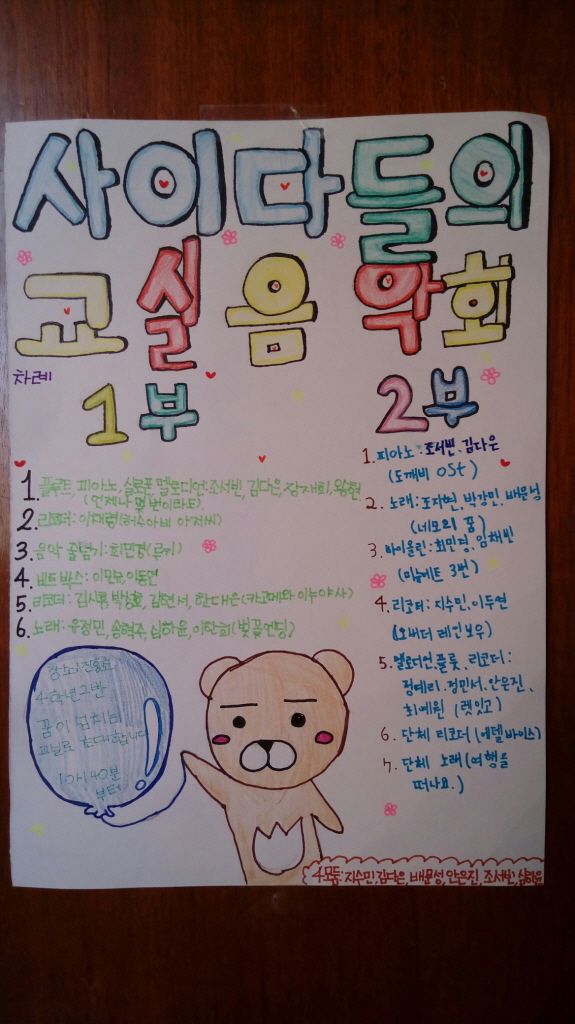 사이다들의
교실음악회
차례
1부
1. 플루트, 피아노, 실로폰, 멜로디언:조서빈, 김다은, 장재희,
(언제나 몇 번이라도)
2. 리코더: (허수아비 아저씨)
3. 음악 줄넘기:최민경
4. 비트 박스: 이민규, 이동연
5. 리코더: 김시훈, 박창호, 김현서, 한대은 (카고메와 이누야사)
6. 노래: 유정민, 송형주, 심하윤, 이한희 (벚꽃엔딩)
2부
1. 피아노:조서빈, 김다은
(도깨비 OSt)
2. 노래: 조자현, 박강민, 배문성
(네모의 꿈)
3. 바이올린:최민경, 임채빈
(미뉴에트 3번)
4. 리코더: 지수민, 이두연
(오버더 레인보우)
5. 멜로디언, 플룻, 리코더:
정태리, 정민서, 안은진,
최예원 (렛잇고)
6. 단체 리코더 (에델바이스)
7. 단체 노래 (여행을
떠나요.)
장소:진응교
4학년2반
꿈이 넘치는
교실로 초대합니다
10시 40분
부터
4모둠:지수민, 김다은, 배문성, 안은진, 조서빈, 심하윤